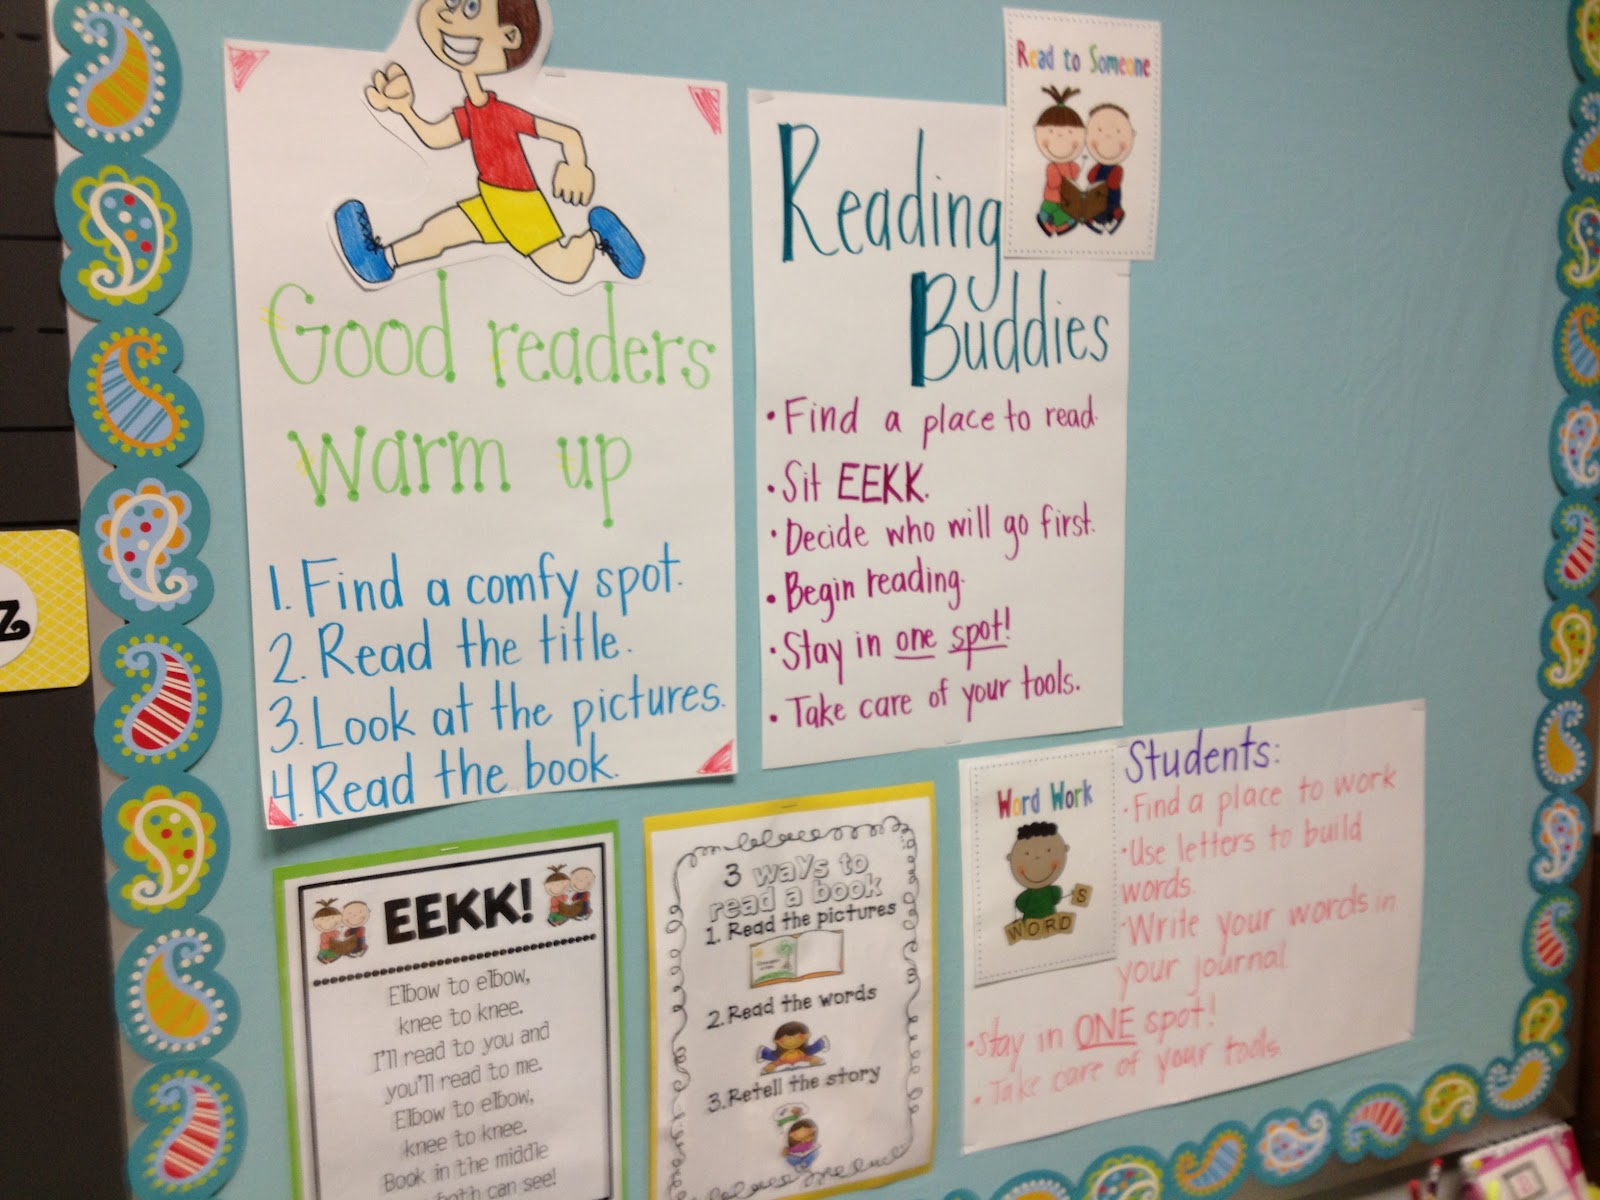 Good readers
warm up
1. Find a comfy spot.
2. Read the title.
3. Look at the pictures.
4. Read the book.
Read to Someone
Reading
Buddies
• Find a place to read.
• Sit EEKK.
• Decide who will go first.
• Begin reading.
• Stay in one spot!
• Take care of your tools.
EEKK!
Elbow to elbow,
knee to knee.
I'll read to you and
you'll read to me.
Elbow to elbow,
knee to knee.
Book in the middle
both can see!
3 ways to
read a book
1. Read the pictures
2. Read the words
3. Retell the story
Word Work
S
WORD
Students:
• Find a place to work
• Use letters to build
words.
• Write your words in
your journal.
• Stay in ONE spot!
• Take care of your tools.
z